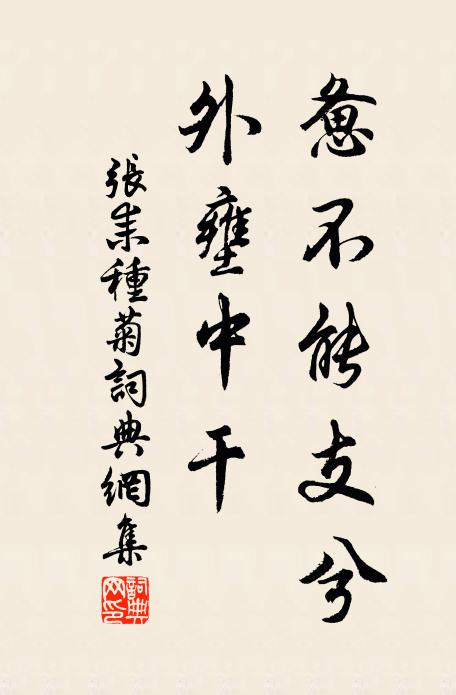 惫不能支兮
外壅中干
張耒種菊詞典網集
詞典網印